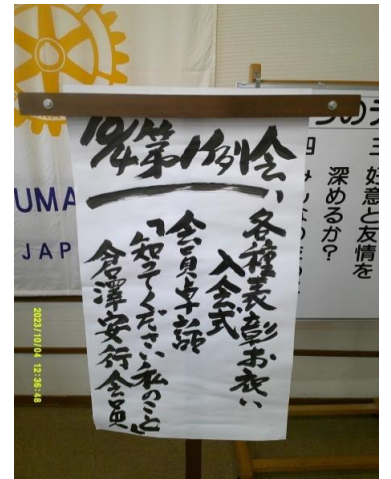 10/4第1例会、
各種表彰お祝い
入会式
会員卓話
「知ってください私のこと」
倉澤安行会員
UMA
JAP
つのテ
三
好意と友情を
深めるか?
四
2023/10/04 12:36:48